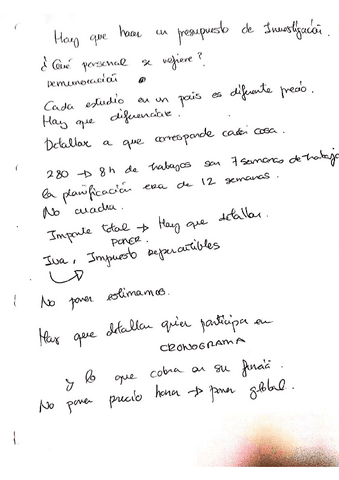 Hay que hacer un presupuesto de Investigación.
¿Qué personal se refiere?
remuneración
Cada estudio en un pais es diferente precio.
Hay que diferenciar.
Detallar a que corresponde cada cosa.
280 → 8h de trabajos son 7 semanas de trabajo
la planificación era de 12 semanas.
No cuadra.
Importe total → Hay que detallar.
PONER.
Iva, Impuesto repercutibles
No poner estimamos.
Hay que detallar quien participa en
CRONOGRAMA
y lo que cobra en su función.
No poner precio hora → poner global.